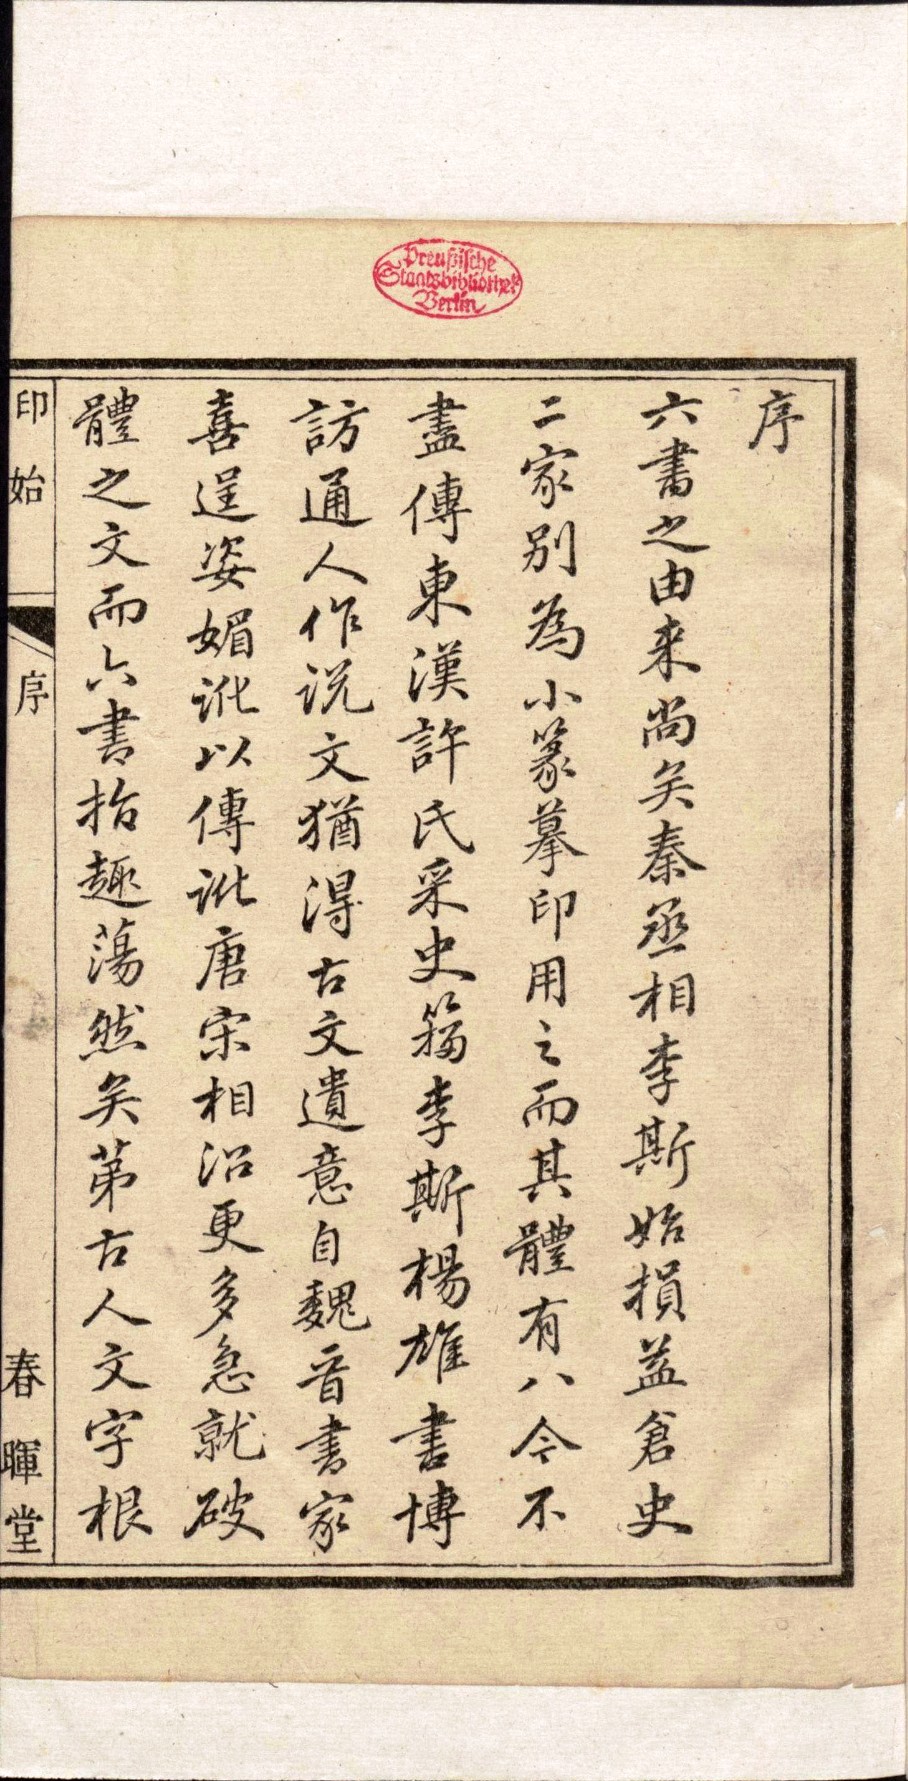 Preußische
Staatsbibliothek
Berlin
序
六書之由来尚矣秦丞相李斯始損益倉史
二家别為小篆摹印用之而其體有八今不
盡傳東漢許氏采史籀李斯楊雄書博
訪通人作説文猶得古文遺意自魏晋書家
喜逞姿媚訛以傳訛唐宋相沿更多急就破
體之文而六書指趣蕩然矣第古人文字根
印始
序
春暉堂